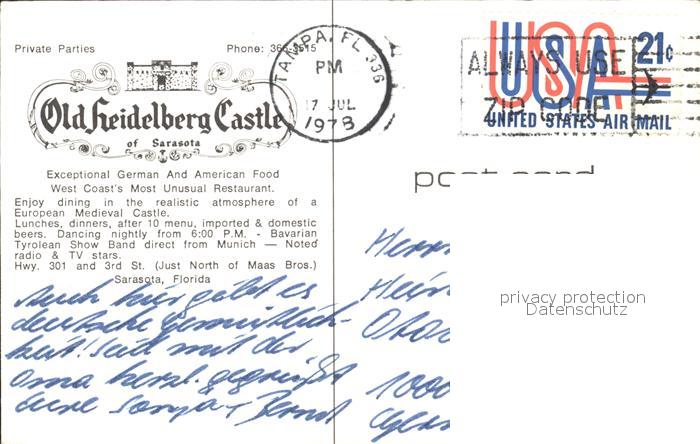 Private Parties
Phone: 366-3515
Old Heidelberg Castle
of Sarasota
Exceptional German And American Food
West Coast's Most Unusual Restaurant.
Enjoy dining in the realistic atmosphere of a
European Medieval Castle.
Lunches, dinners, after 10 menu, imported & domestic
beers. Dancing nightly from 6:00 P.M. - Bavarian
Tyrolean Show Band direct from Munich — Noted
radio & TV stars.
Hwy. 301 and 3rd St. (Just North of Maas Bros.)
Sarasota, Florida
Auch hier gibt es
deutsche Gemütlich-
keit! Seid mit der
Oma herzl. gegrüßt
Eure Sonja + Bernd
TAMPA, FL 336
PM
17 JUL
1978
ALWAYS USE
ZIP CODE
USA 21c
UNITED STATES AIR MAIL
post card
Herrn
1000
privacy protection
Datenschutz